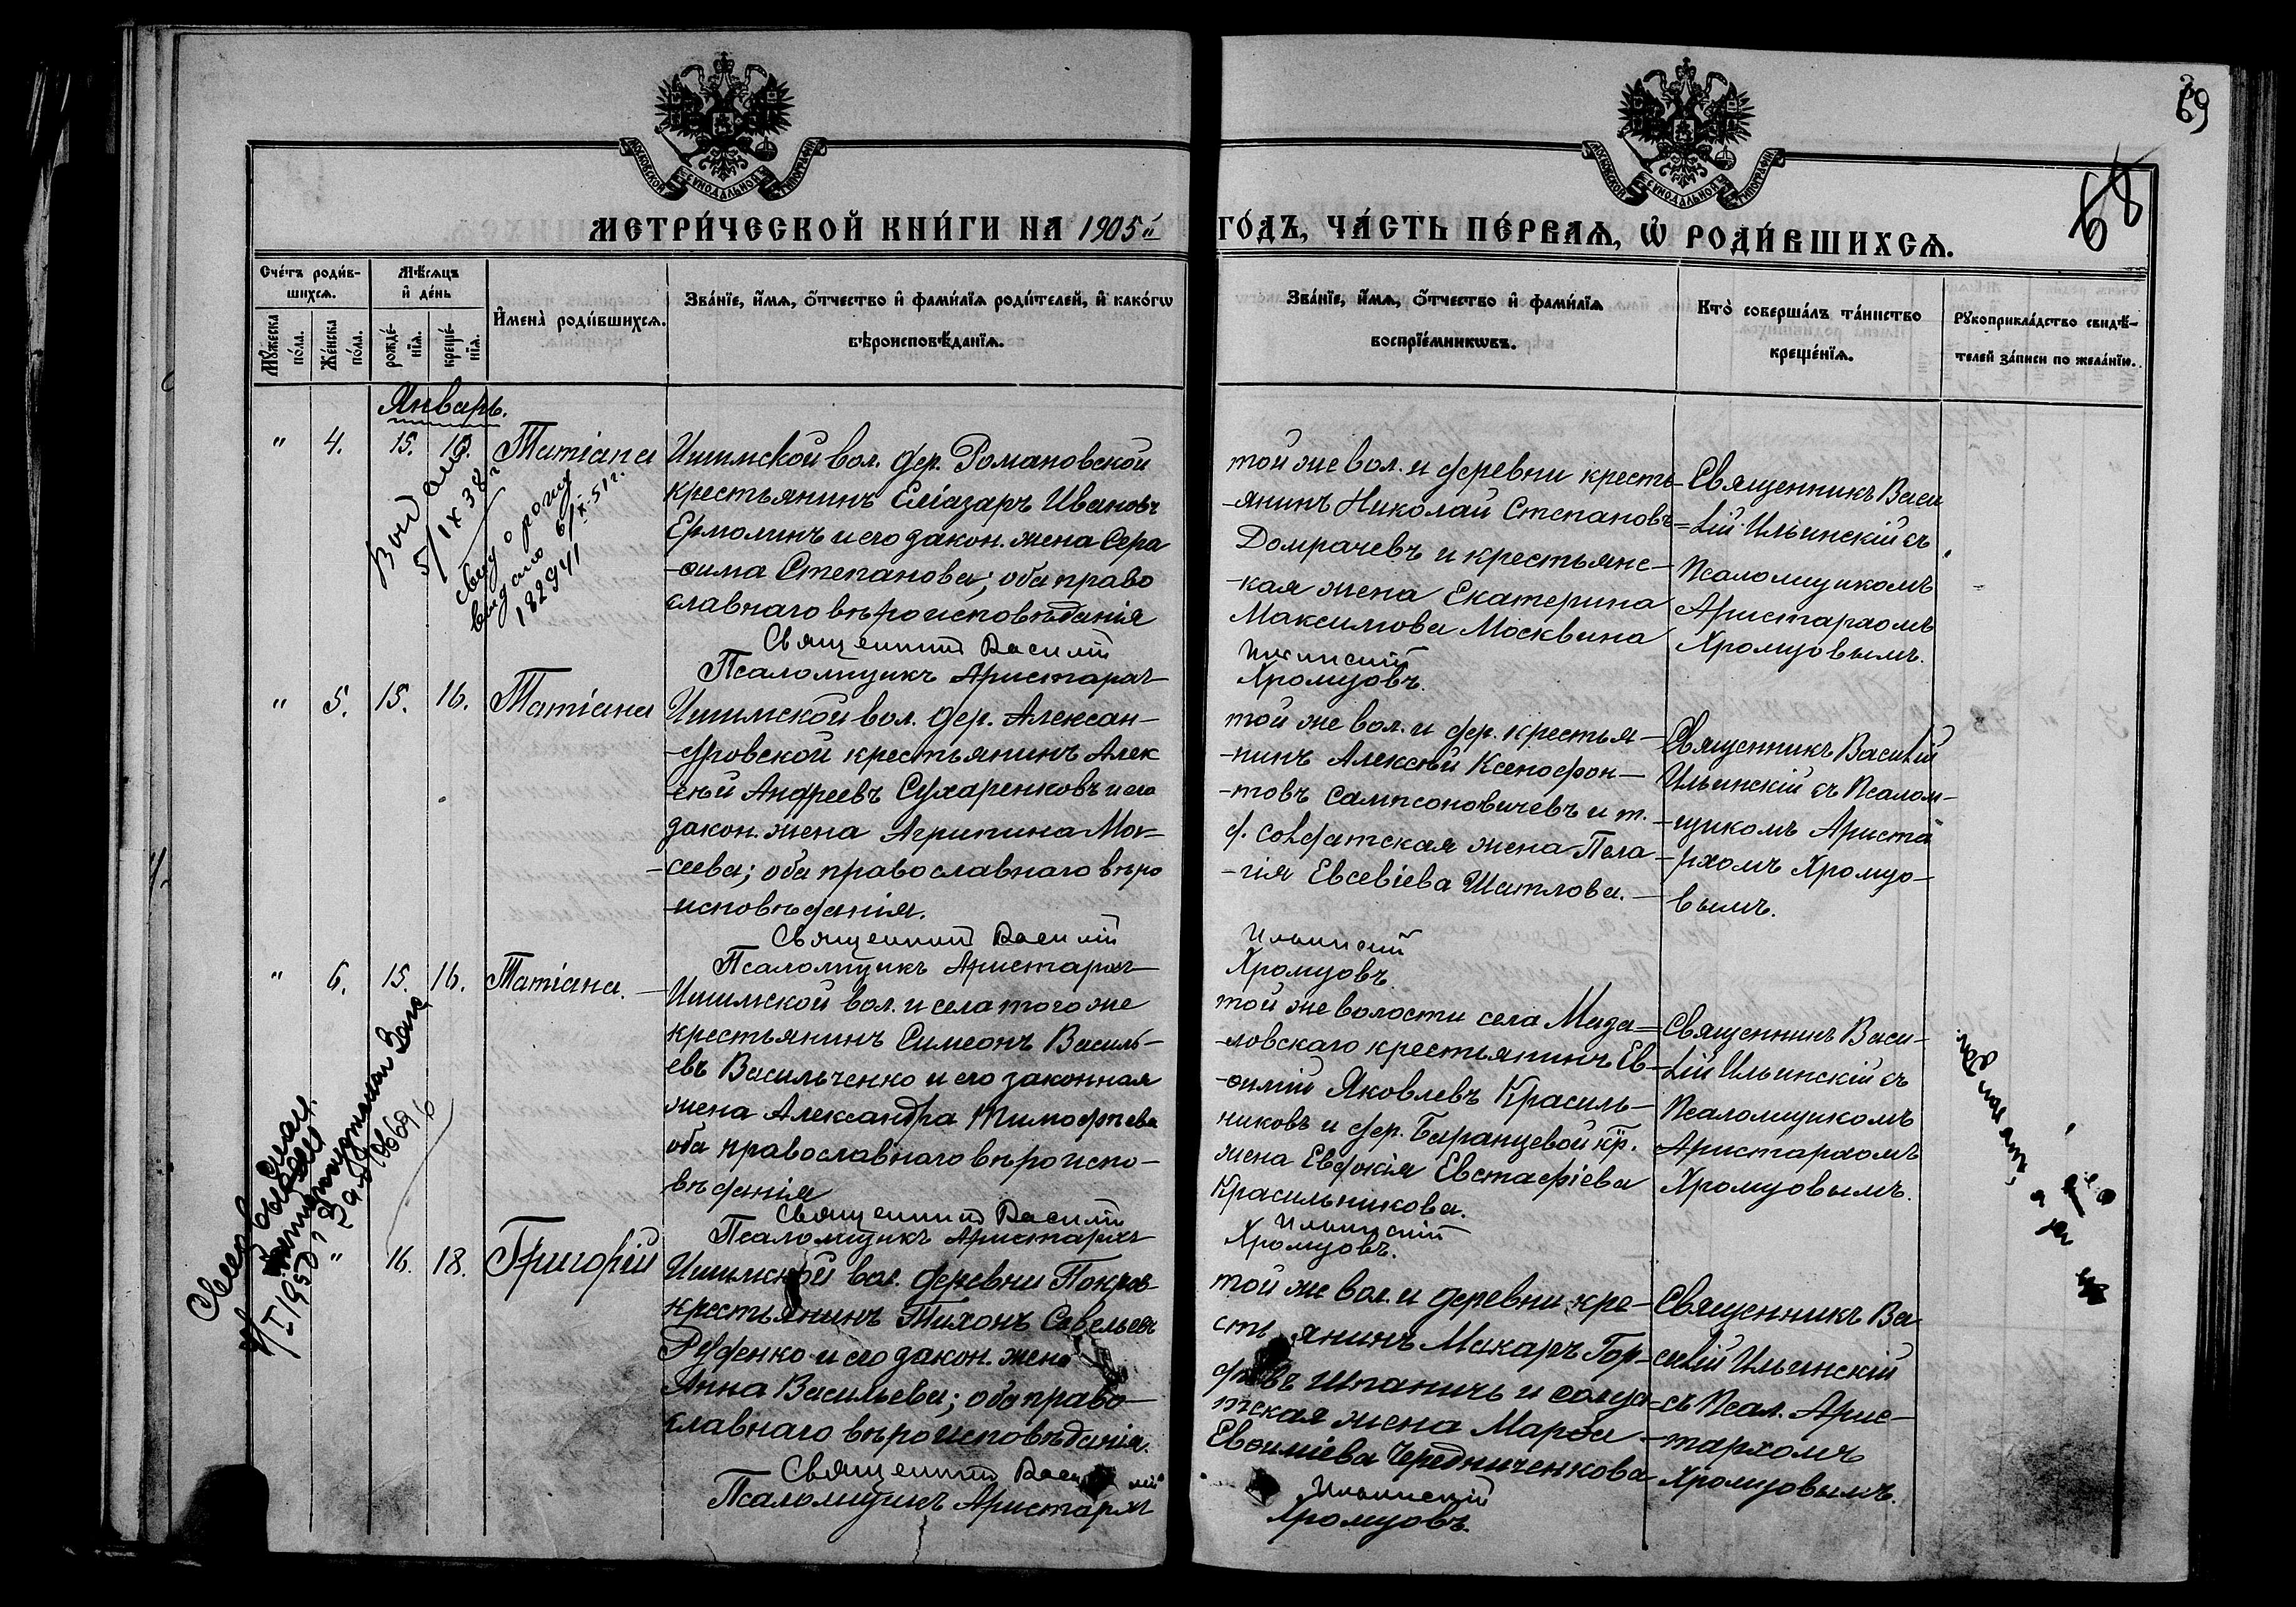 69
68
МОСКОВСКОЙ СѴНОДАЛЬНОЙ ТИПОГРАФІИ
МОСКОВСКОЙ СѴНОДАЛЬНОЙ ТИПОГРАФІИ
МЕТРИ́ЧЕСКОЙ КНИ́ГИ НА 1905й ГО́ДЪ, ЧА́СТЬ ПЕ́РВАѦ, Ѡ҆ РОДИ́ВШИХСѦ.
Сче́тъ роди́в-
шихсѧ.
Мѣ́сѧцъ
и҆ де́нь
Мꙋ́жеска
по́ла.
Же́нска
по́ла.
рожде́-
нїѧ.
креще́-
нїѧ.
И҆мена̀ роди́вшихсѧ.
Зва́нїе, и҆́мѧ, ѻ҆́тчество и҆ фами́лїѧ роди́телей, и҆ како́гѡ
вѣроисповѣ́данїѧ.
Зва́нїе, и҆́мѧ, ѻ҆́тчество и҆ фами́лїѧ
воспрїе́мникѡвъ.
Кто̀ соверша́лъ та́инство
креще́нїѧ.
Рꙋкоприкла́дство свидѣ́-
телей за́писи по жела́нїю.
Январь.
" 4. 15. 16. Татіана
Ишимской вол. дер. Романовской
крестьянинъ Еліазаръ Ивановъ
Ермолинъ и его закон. жена Сера
-фима Степанова; оба право
славнаго вѣроисповѣданія
Священникъ Василій
Псаломщикъ Аристархъ
той же вол. и деревни кресть-
-янинъ Николай Степановъ
Домрачевъ и крестьянс-
-кая жена Екатерина
Максимова Москвина
Ильинскій
Хромцовъ.
Священникъ Васи
=лій Ильинскій съ
Псаломщикомъ
Аристархомъ
Хромцовымъ.
5/IX 38 г
Свид о рожд
выдано 6/X-51 г.
182941
" 5. 15. 16. Татіана
Ишимской вол. дер. Алексан-
-дровской крестьянинъ Алек
-сѣй Андреевъ Сухаренковъ и его
закон. жена Агрипина Мои-
-сеева; оба православнаго вѣро
-исповѣданія.
Священникъ Василій
Псаломщикъ Аристархъ
той же вол. и дер. крестья-
-нинъ Алексѣй Ксенофон-
-товъ Сампсоновичевъ и т.
д. солдатская жена Пела-
-гія Евсевіева Шатлова.
Ильинскій
Хромцовъ.
Священникъ Василій
Ильинскій съ Псалом-
-щикомъ Ариста
-рхомъ Хромцо-
вымъ.
" 6. 15. 16. Татіана.
Ишимской вол. и села того же
крестьянинъ Симеонъ Василь-
евъ Васильченко и его законная
жена Александра Тимофѣева
оба православнаго вѣроиспо-
вѣданія
Священникъ Василій
Псаломщикъ Аристархъ
той же волости села Мада=
-ловскаго крестьянинъ Ев-
-фимій Яковлевъ Красиль-
никовъ и дер. Баранцевой кр.
жена Евдокія Евстафіева
Красильникова.
Ильинскій
Хромцовъ.
Священникъ Васи-
-лій Ильинскій съ
Псаломщикомъ
Аристархомъ
Хромцовымъ.
" 16. 18. Григорій
Ишимской вол. деревни Покров
крестьянинъ Тихонъ Савельевъ
Руденко и его закон. жена
Анна Васильева; оба право-
славнаго вѣроисповѣданія.
Священникъ Василій
Псаломщикъ Аристархъ
той же вол. и деревни кре-
стьянинъ Макаръ Гор-
дѣевъ Шпаничъ и солда-
тская жена Марфа
Евфиміева Чередниченкова
Ильинскій
Хромцовъ.
Священникъ Ва
силій Ильинскій
съ Псал. Арис-
-тархомъ
Хромцовымъ.